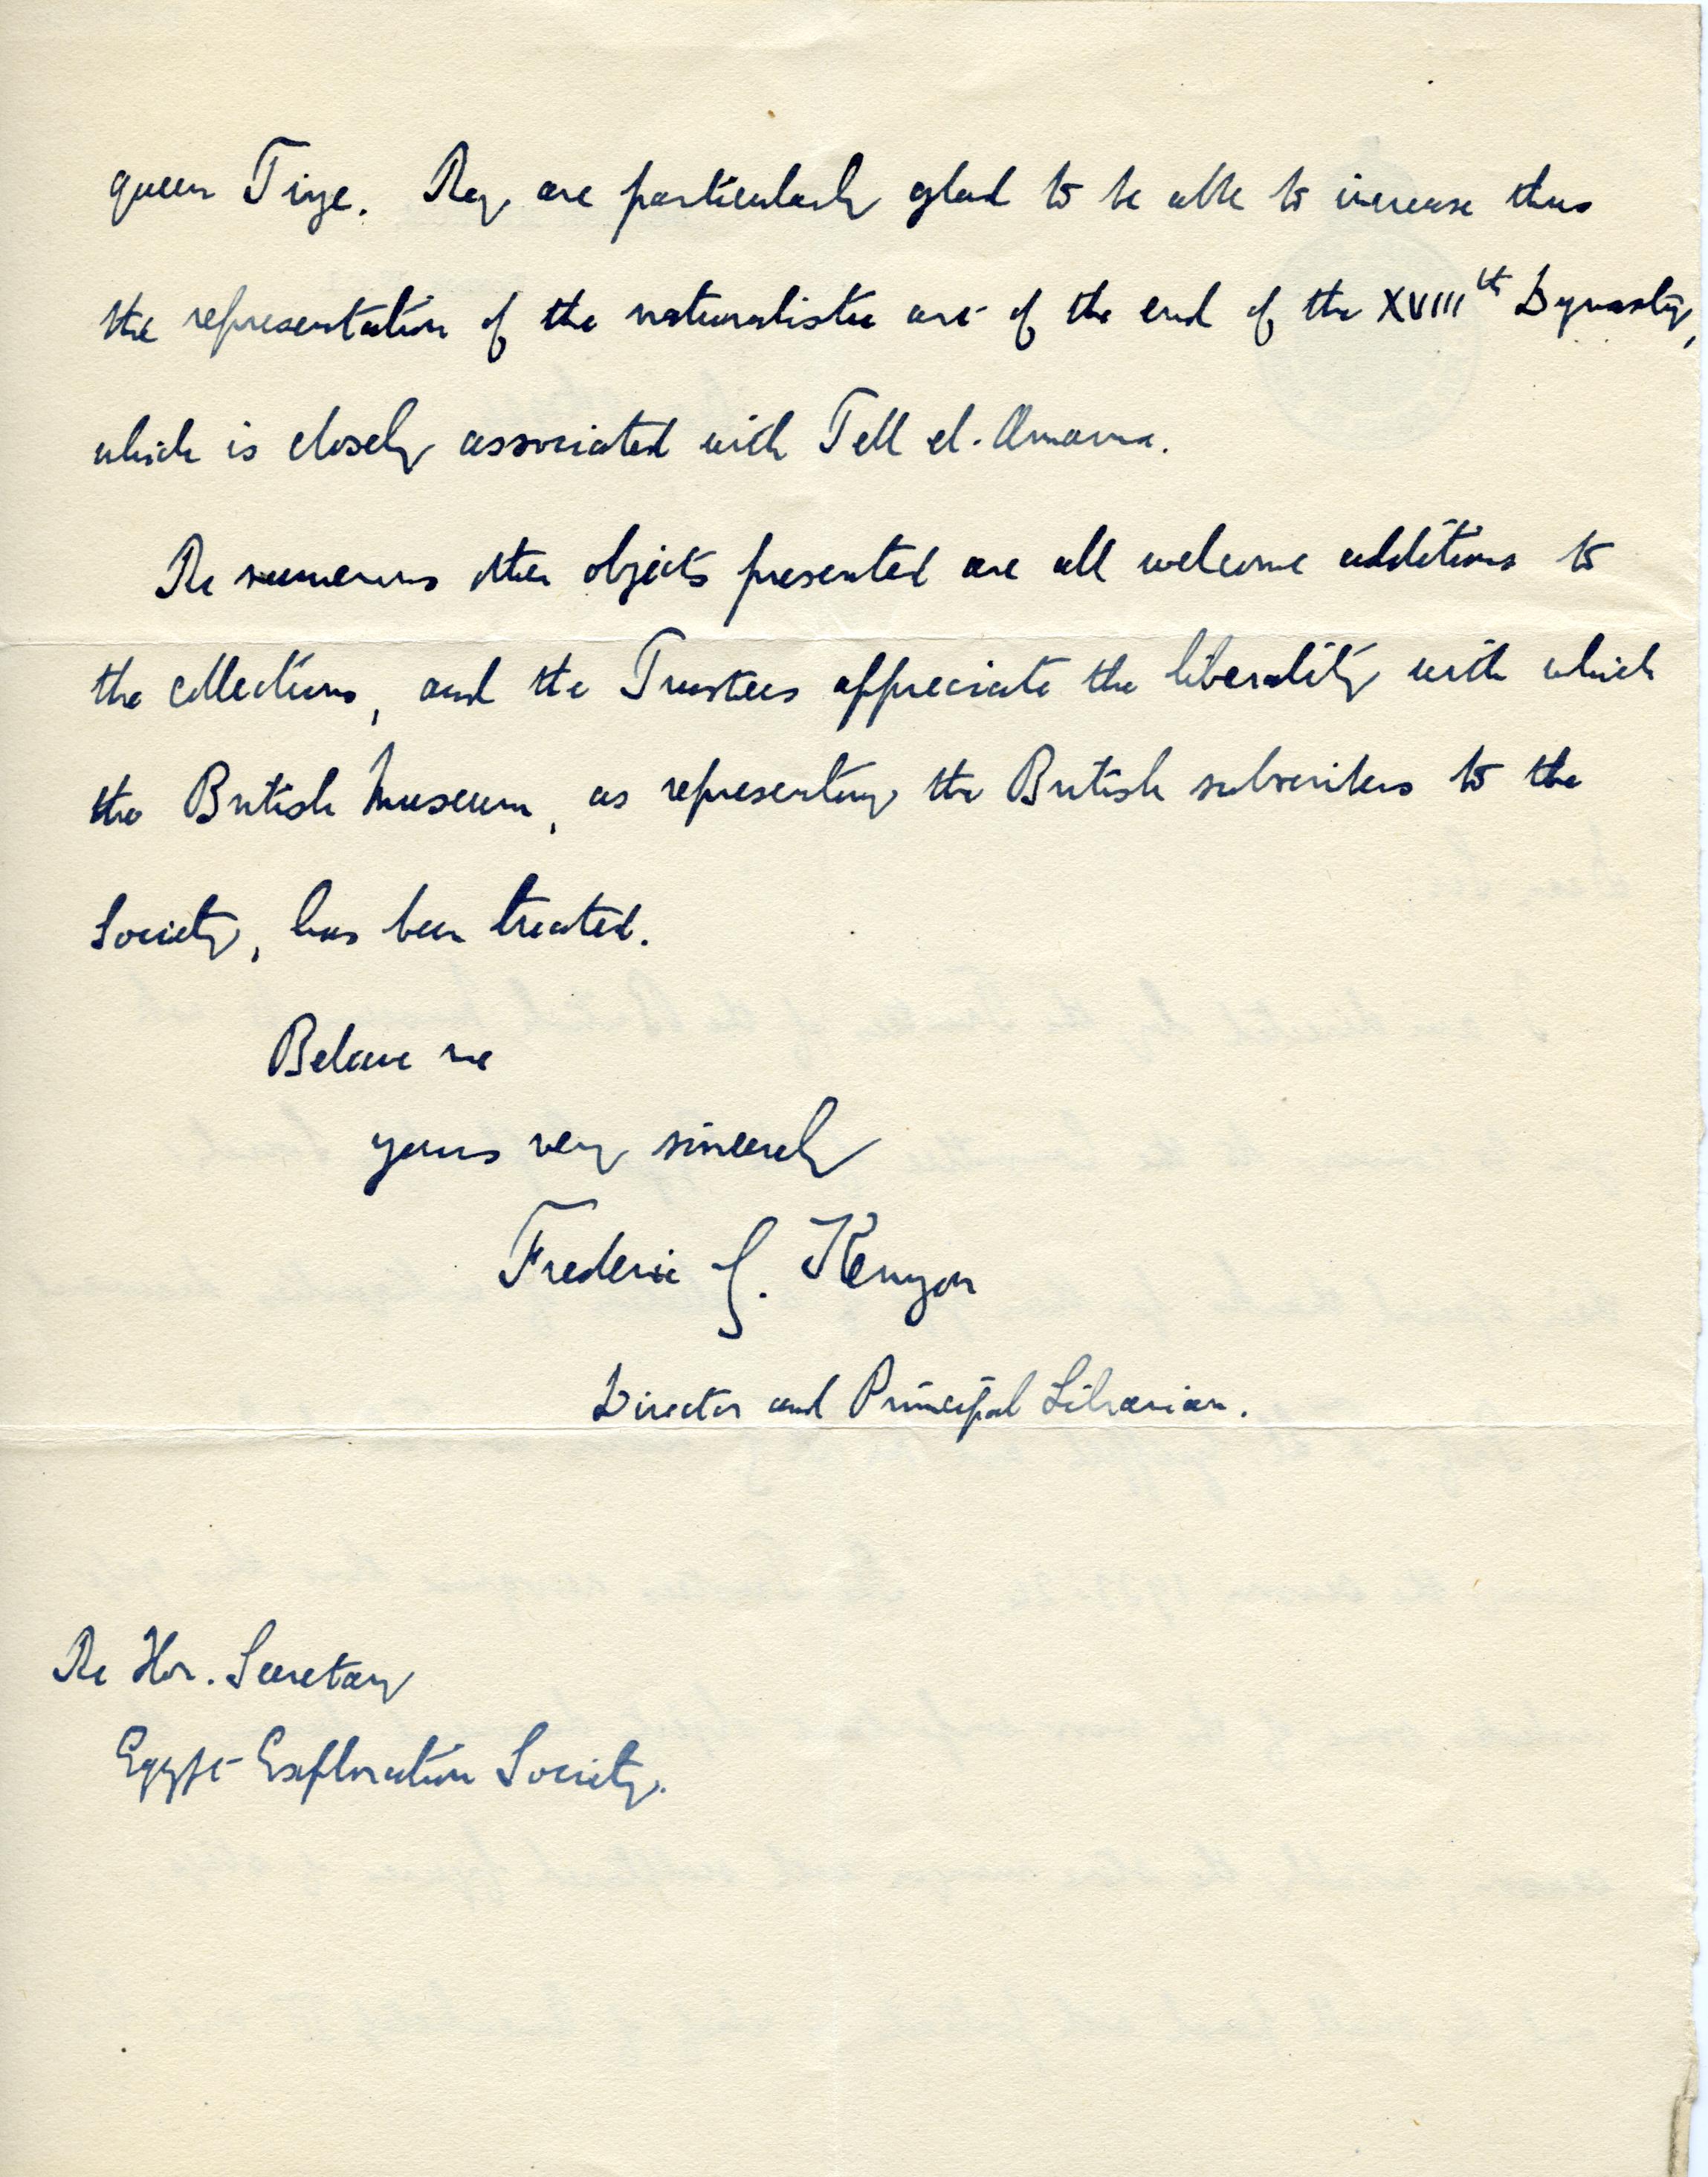 queen Tiye. They are particularly glad to be able to increase thus
the representation of the naturalistic art of the end of the XVIIIth Dynasty,
which is closely associated with Tell el-Amarna.
The numerous other objects presented are all welcome additions to
the collections, and the Trustees appreciate the liberality with which
the British Museum, as representing the British subscribers to the
Society, has been treated.
Believe me
yours very sincerely
Frederic G. Kenyon
Director and Principal Librarian.
The Hon. Secretary
Egypt Exploration Society.